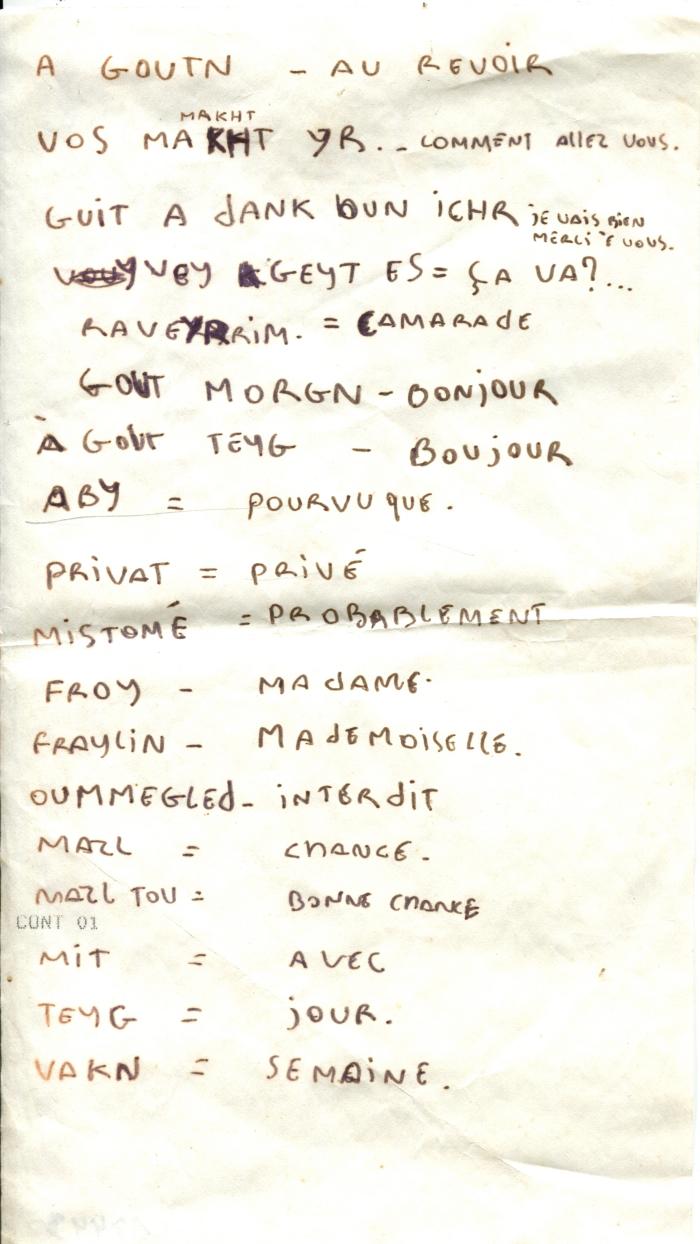 A GOUTN - AU REVOIR
MAKHT
VOS MAKHT YR.. COMMENT ALLEZ VOUS.
GUIT A DANK BUN ICHR JE VAIS BIEN
MERCI E VOUS.
VEY GEYT ES = ÇA VA?...
RAVEYRIM. = CAMARADE
GOUT MORGN - BONJOUR
À GOUT TEYG - BOUJOUR
ABY = POURVU QUE.
PRIVAT = PRIVÉ
MISTOMÉ = PROBABLEMENT
FROY - MADAME.
FRAYLIN - MADEMOISELLE.
OUMMEGLED - INTERDIT
MAZL = CHANCE.
MAZL TOU = BONNE CHANCE
CONT 01
MIT = AVEC
TEYG = JOUR.
VAKN = SEMAINE.